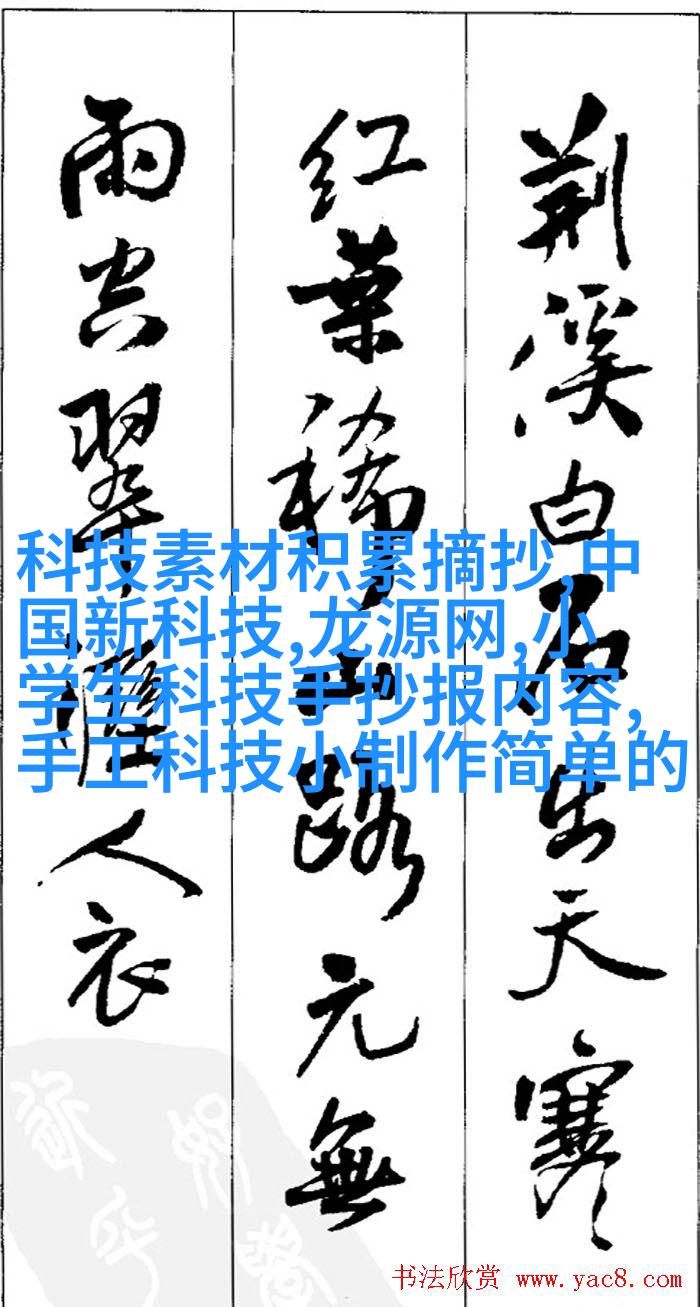 荆溪白石出天寒
红葉稀山路元無
雨空翠濕人衣
科技素材积累摘抄,中
国新科技,龙源网,小
学生科技手抄报内容,
手工科技小制作简单的
书法欣赏 www.yac8.com